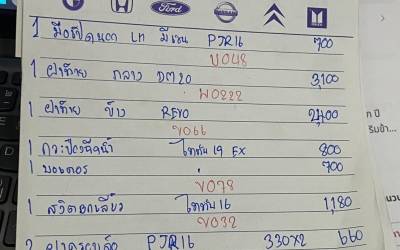 Ford
NISSAN
1 มือเปิดนอก LH มีรูน PJR16 700
V048
1 ฝาท้าย กลาง DM20 3,100
W0222
1 ฝาท้าย ข้าง REVO 2,400
V066
1 กระป๋องฉีดน้ำ ไททัน 19 EX 800
1 มอเตอร์ 700
V078
1 สวิตยกเลี้ยว ไททัน 16 1,180
V032
PJR16 330X2 660